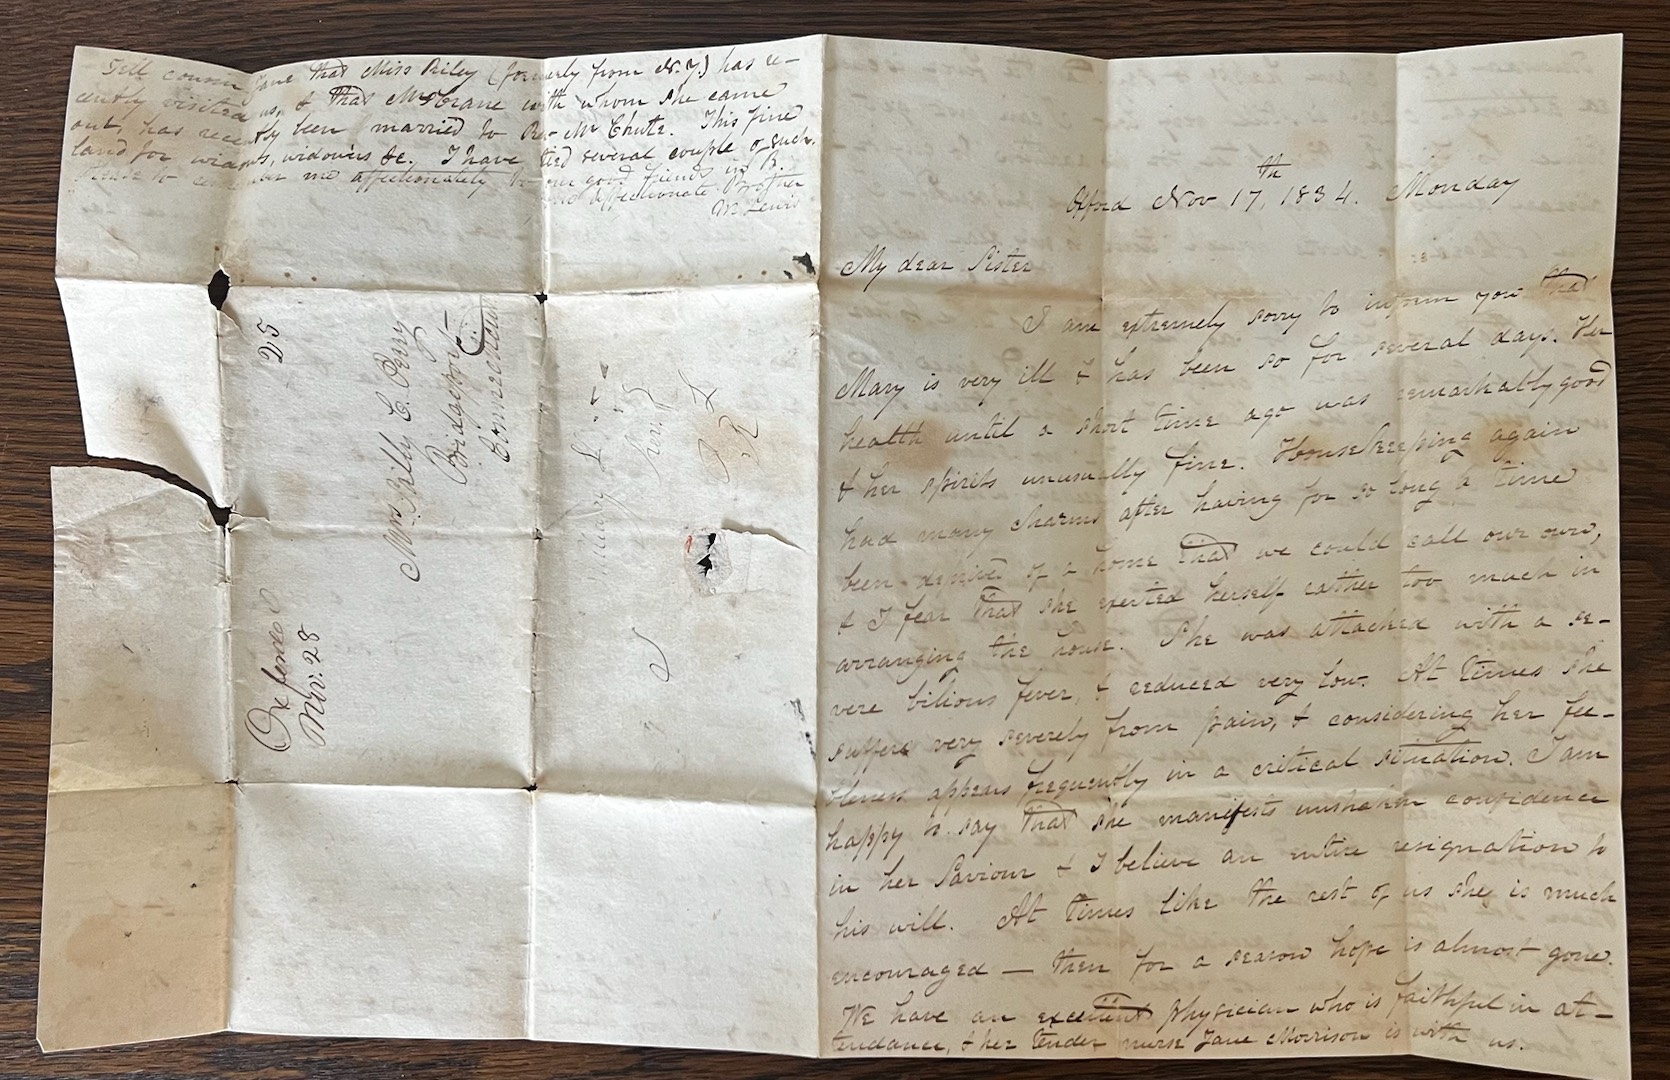 Tell cousin Jane that Miss Riley (formerly from N.Y.) has re-
cently visited us, & that Mrs Crane with whom she came
out, has recently been married to Rev. Mr Chute. This fine
land for widows, widowers &c. I have tied several couple of such.
Please to remember me affectionately to our good friends in B.
affectionate Brother
M Lewis
25
Mrs. Sally C. Perry
Bridgeport
Connecticut
Oxford O
Nov: 28
Mary L
Oxford Nov 17,th 1834. Monday
My dear Sister
I am extremely sorry to inform you that
Mary is very ill & has been so for several days. Her
health until a short time ago was remarkably good
& her spirits unusually fine. Housekeeping again
had many charms after having for so long a time
been deprived of a home that we could call our own,
& I fear that she exerted herself rather too much in
arranging the house. She was attacked with a se-
vere bilious fever, & reduced very low. At times she
suffers very severely from pain, & considering her fee-
bleness appears frequently in a critical situation. I am
happy to say that she manifests unshaken confidence
in her Saviour & I believe an entire resignation to
his will. At times like the rest of us she is much
encouraged — then for a season hope is almost gone.
We have an excellent physician who is faithful in at-
tendance, & her tender nurse Jane Morrison is with us.